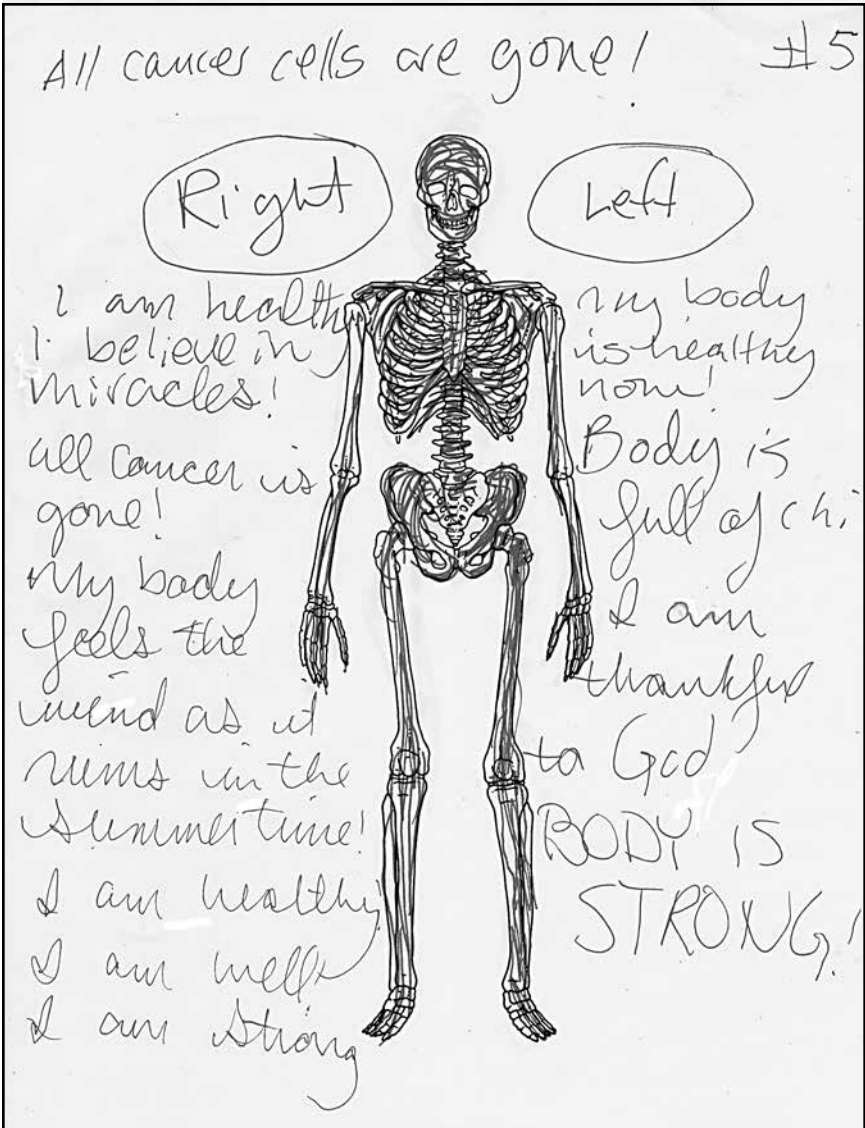 All cancer cells are gone!
#5
Right
I am healthy
I believe in
miracles!
all cancer is
gone!
My body
feels the
wind as it
runs in the
summertime!
I am healthy
I am well
I am strong
Left
My body
is healthy
now!
Body is
full of chi
I am
thankful
to God
BODY IS
STRONG!